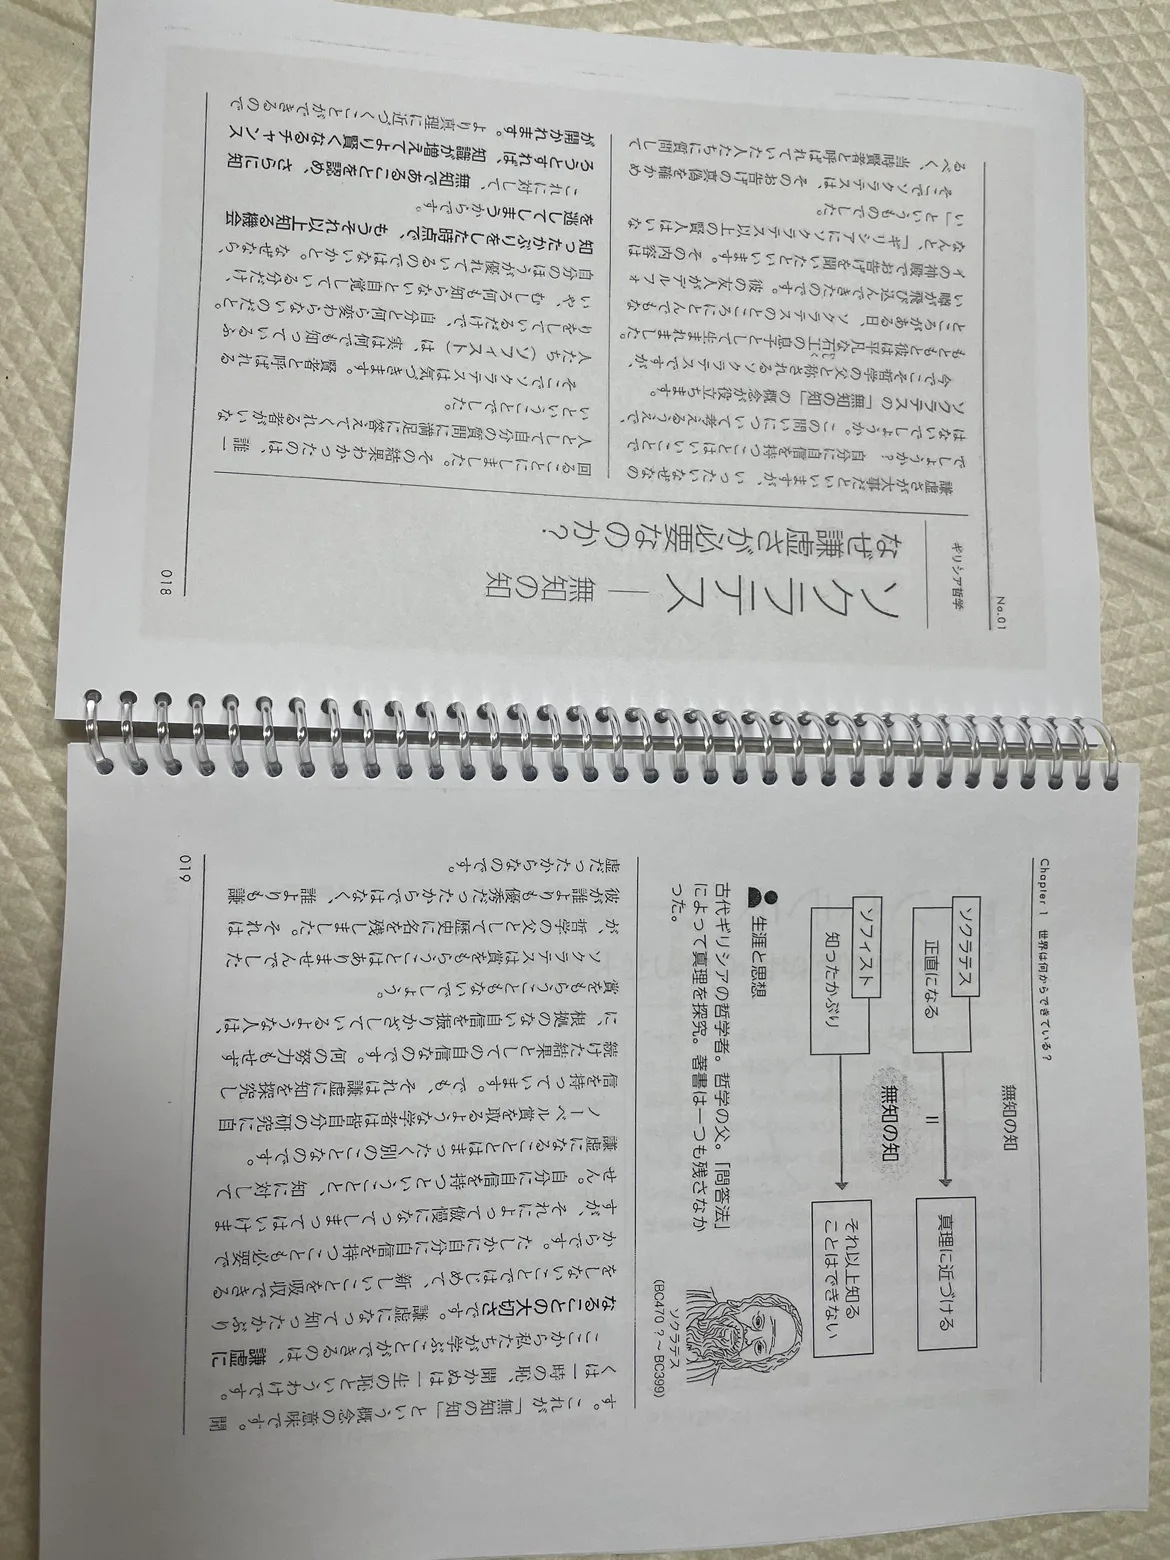 No.01
ギリシア哲学
ソクラテス — 無知の知
なぜ謙虚さが必要なのか？
謙虚さが大事だといいますが、いったいなぜなの
でしょうか？ 自分に自信を持つことはいいことで
はないでしょうか。この問いについて考えるうえで、
ソクラテスの「無知の知」の概念が役立ちます。
今でこそ哲学の父と称されるソクラテスですが、
もともと彼は平凡な石工の息子として生まれました。
ところがある日、ソクラテスのところにとんでもな
い噂が飛び込んできたのです。彼の友人がデルフォ
イの神殿でお告げを聞いたといいます。その内容は
なんと、「ギリシアにソクラテス以上の賢人はいな
い」というものでした。
そこでソクラテスは、そのお告げの真偽を確かめ
るべく、当時賢者と呼ばれていた人たちに質問して
回ることにしました。その結果わかったのは、誰一
人として自分の質問に満足に答えてくれる者がいな
いということでした。
そこでソクラテスは気づきます。賢者と呼ばれる
人たち（ソフィスト）は、実は何でも知っているふ
りをしているだけで、自分と何ら変わらないのだと。
いや、むしろ何も知らないと自覚している分だけ、
自分のほうが優れているのではないかと。なぜなら、
知ったかぶりをした時点で、もうそれ以上知る機会
を逃してしまうからです。
これに対して、無知であることを認め、さらに知
ろうとすれば、知識が増えてより賢くなるチャンス
が開かれます。より真理に近づくことができるので
018
Chapter 1 世界は何からできている？
無知の知
ソクラテス
正直になる
真理に近づける
＝
無知の知
ソフィスト
知ったかぶり
それ以上知る
ことはできない
生涯と思想
古代ギリシアの哲学者。哲学の父。「問答法」
によって真理を探究。著書は一つも残さなか
った。
ソクラテス
(BC470？〜BC399)
す。これが「無知の知」という概念の意味です。聞
くは一時の恥、聞かぬは一生の恥というわけです。
ここから私たちが学ぶことができるのは、謙虚に
なることの大切さです。謙虚になって知ったかぶり
をしないことではじめて、新しいことを吸収できる
からです。たしかに自分に自信を持つことも必要で
すが、それによって傲慢になってしまってはいけま
せん。自分に自信を持つということと、知に対して
謙虚になることとはまったく別のことなのです。
ノーベル賞を取るような学者は皆自分の研究に自
信を持っています。でも、それは謙虚に知を探究し
続けた結果としての自信なのです。何の努力もせず
に、根拠のない自信を振りかざしているような人は、
賞をもらうこともないでしょう。
ソクラテスは賞をもらうことはありませんでした
が、哲学の父として歴史に名を残しました。それは
彼が誰よりも優秀だったからではなく、誰よりも謙
虚だったからなのです。
019